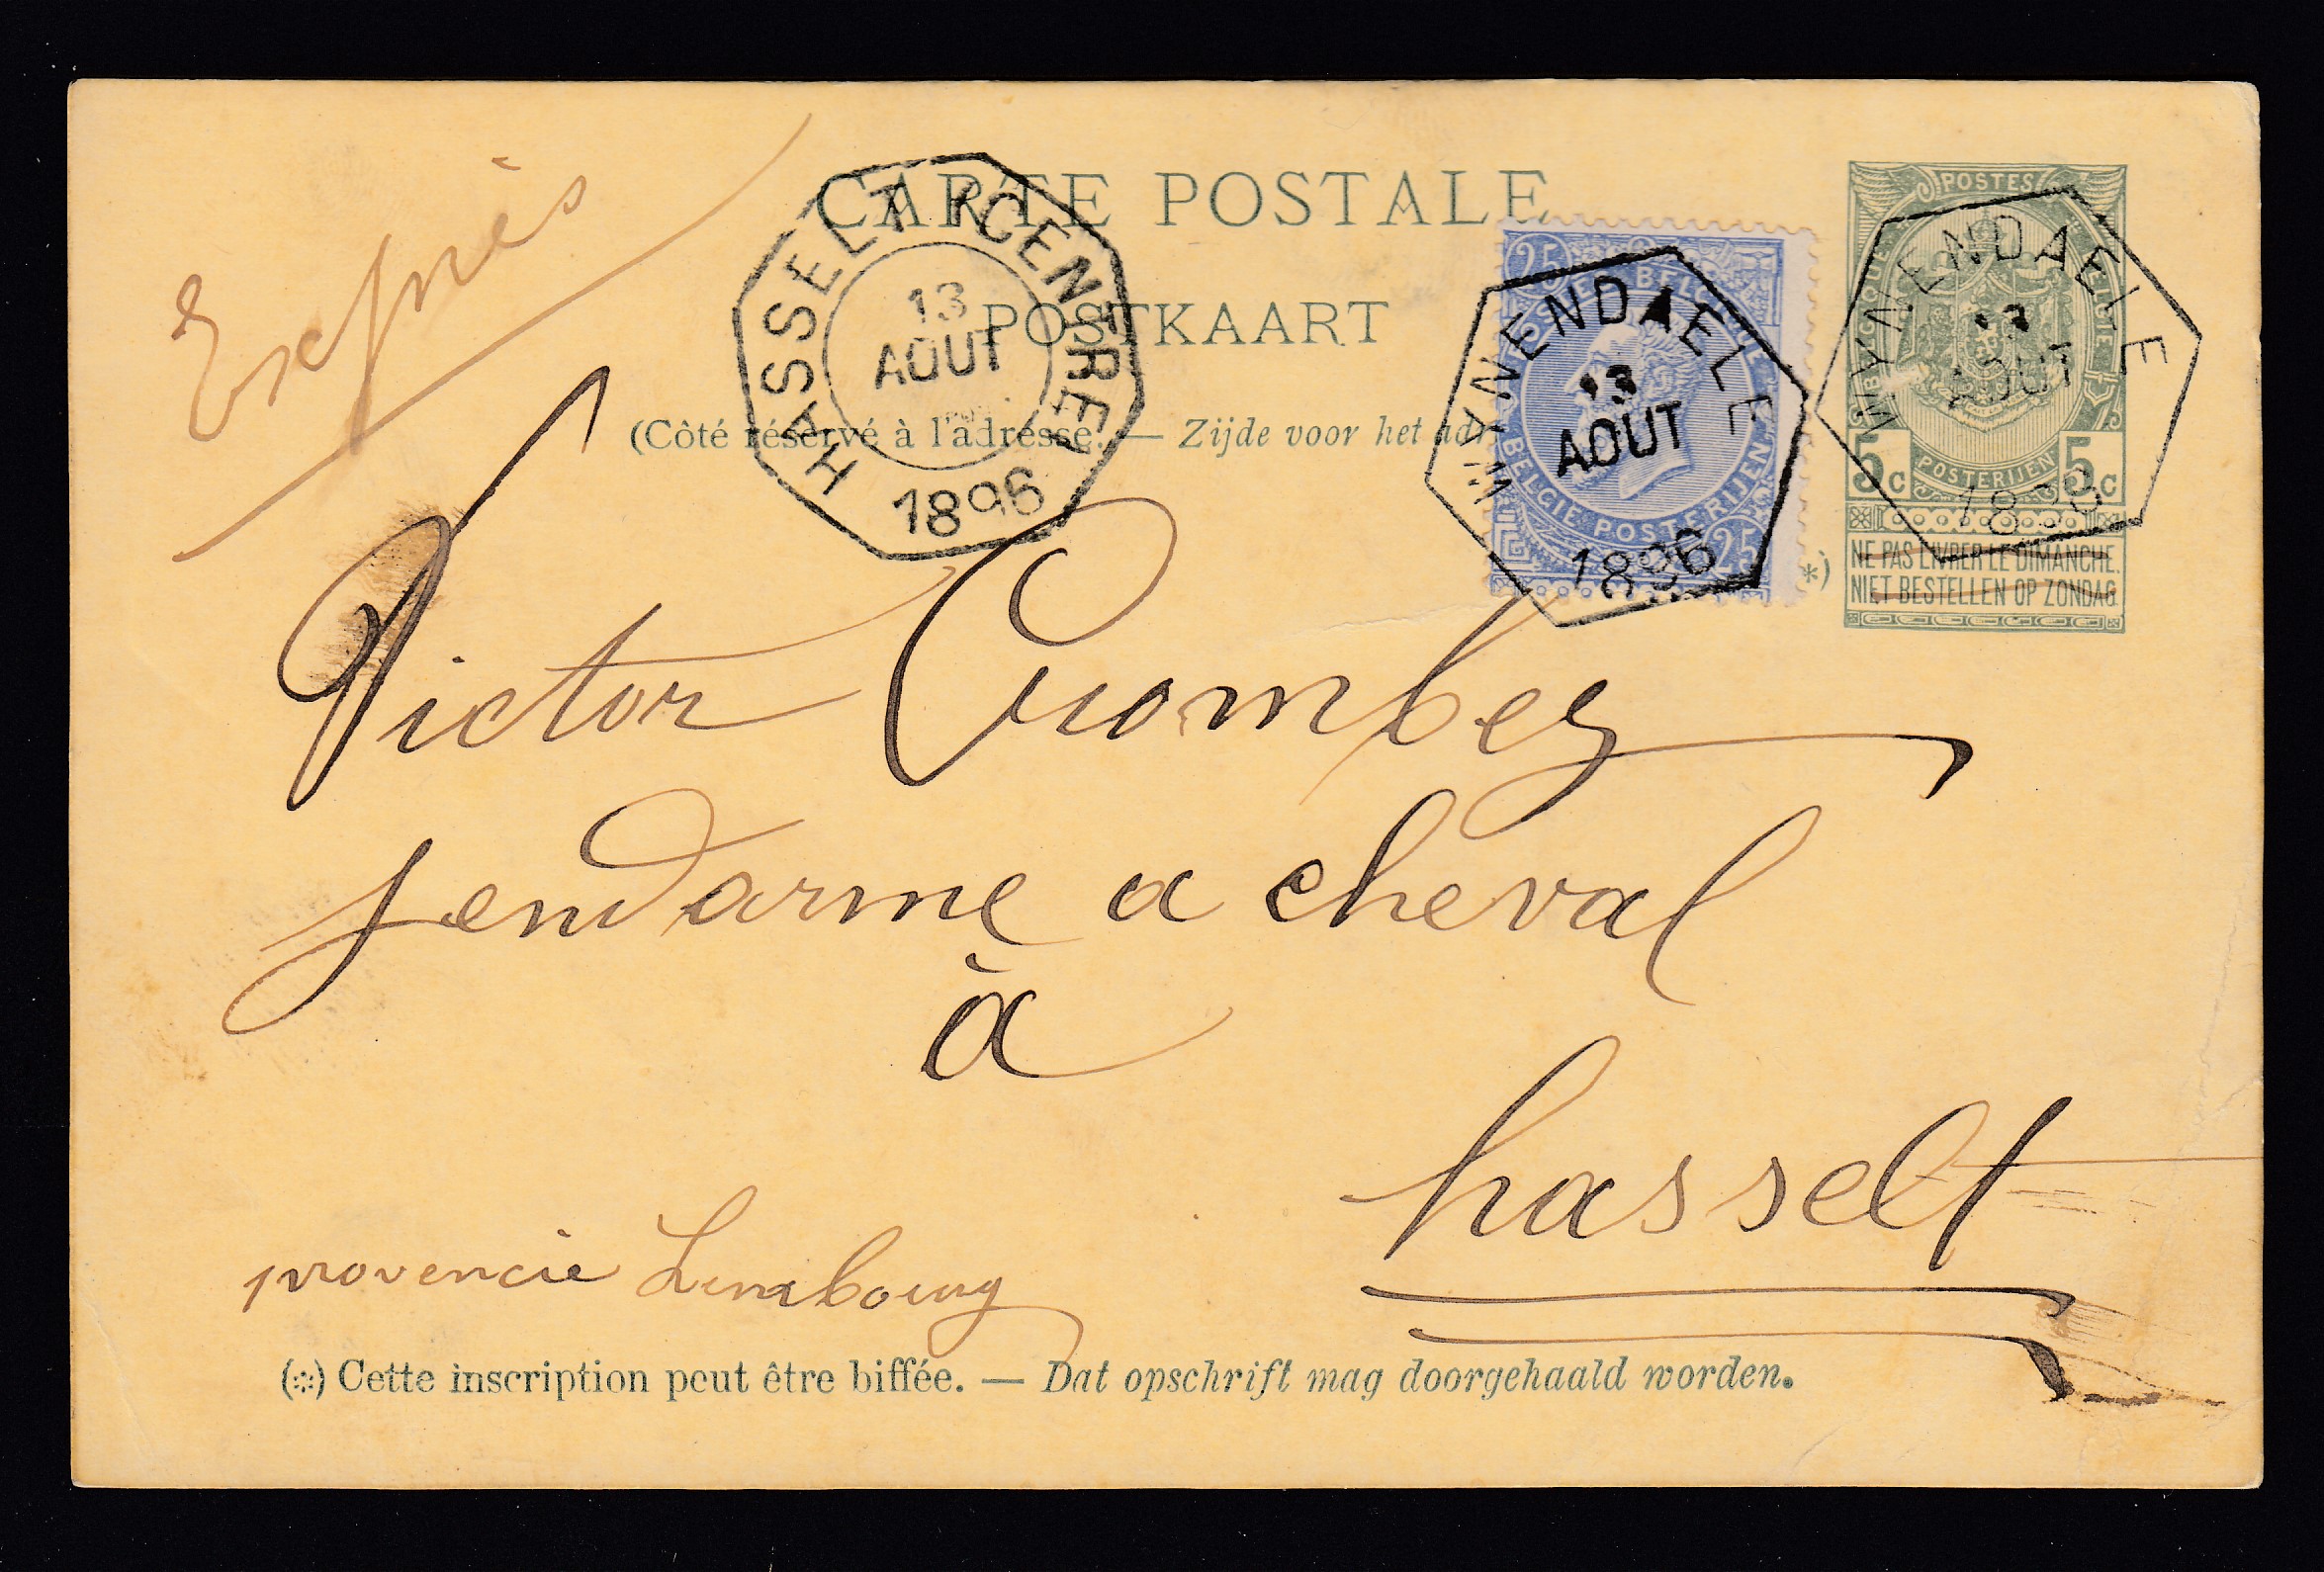 Exprès
CARTE POSTALE
POSTKAART
(Côté réservé à l'adresse. — Zijde voor het adr
HASSELT (CENTRE)
13
AOUT
1896
25 25
POSTES BELGIQUE BELGIE POSTERIJEN
WYNENDAELE
13
AOUT
1896
POSTES
BELGIQUE BELGIE
POSTERIJEN
5c 5c
WYNENDAELE
13
AOUT
1896
*)
NE PAS LIVRER LE DIMANCHE.
NIET BESTELLEN OP ZONDAG.
Victor Crombez
gendarme a cheval
à
hasselt
provencie Limbourg
(*) Cette inscription peut être biffée. — Dat opschrift mag doorgehaald worden.